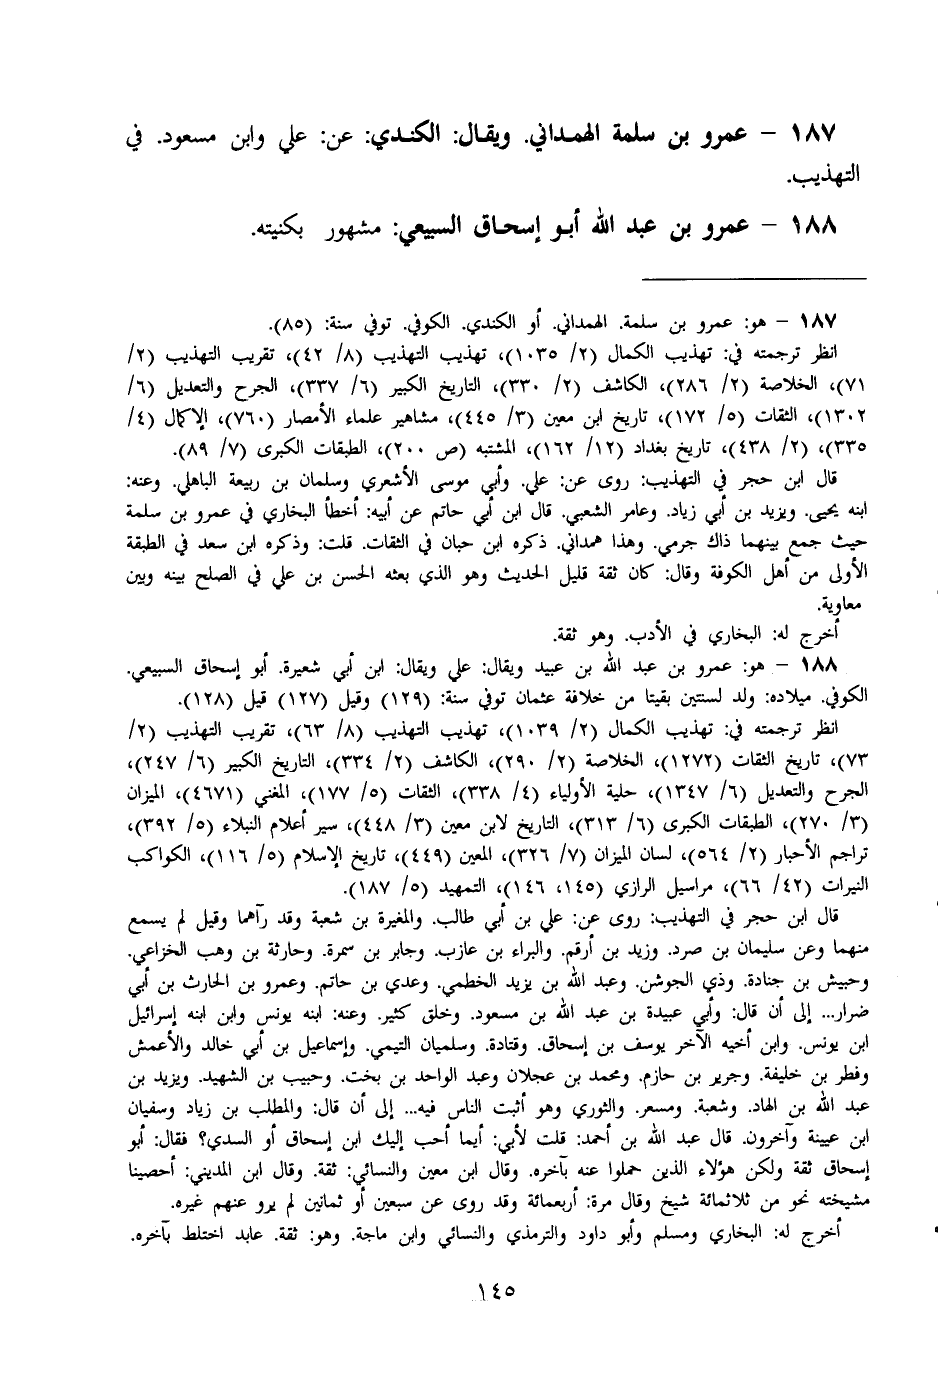 ١٨٧ – عمرو بن سلمة الهمداني. ويقال: الكندي: عن: علي وابن مسعود. في
التهذيب.
١٨٨ – عمرو بن عبد الله أبو إسحاق السبيعي: مشهور بكنيته.
١٨٧ – هو: عمرو بن سلمة. الهمداني. أو الكندي. الكوفي. توفي سنة: (٨٥).
انظر ترجمته في: تهذيب الكمال (٢/ ١٠٣٥)، تهذيب التهذيب (٨/ ٤٢)، تقريب التهذيب (٢/
٧١)، الخلاصة (٢/ ٢٨٦)، الكاشف (٢/ ٣٣٠)، التاريخ الكبير (٦/ ٣٣٧)، الجرح والتعديل (٦/
١٣٠٢)، الثقات (٥/ ١٧٢)، تاريخ ابن معين (٣/ ٤٤٥)، مشاهير علماء الأمصار (٧٦٠)، الإكمال (٤/
٣٣٥)، (٢/ ٤٣٨)، تاريخ بغداد (١٢/ ١٦٢)، المشتبه (ص ٢٠٠)، الطبقات الكبرى (٧/ ٨٩).
قال ابن حجر في التهذيب: روى عن: علي. وأبي موسى الأشعري وسلمان بن ربيعة الباهلي. وعنه:
ابنه يحيى. ويزيد بن أبي زياد. وعامر الشعبي. قال ابن أبي حاتم عن أبيه: أخطأ البخاري في عمرو بن سلمة
حيث جمع بينهما ذاك جرمي. وهذا همداني. ذكره ابن حبان في الثقات. قلت: وذكره ابن سعد في الطبقة
الأولى من أهل الكوفة وقال: كان ثقة قليل الحديث وهو الذي بعثه الحسن بن علي في الصلح بينه وبين
معاوية.
أخرج له: البخاري في الأدب. وهو ثقة.
١٨٨ – هو: عمرو بن عبد الله بن عبيد ويقال: علي ويقال: ابن أبي شعيرة. أبو إسحاق السبيعي.
الكوفي. ميلاده: ولد لسنتين بقيتا من خلافة عثمان توفي سنة: (١٢٩) وقيل (١٢٧) قيل (١٢٨).
انظر ترجمته في: تهذيب الكمال (٢/ ١٠٣٩)، تهذيب التهذيب (٨/ ٦٣)، تقريب التهذيب (٢/
٧٣)، تاريخ الثقات (١٢٧٢)، الخلاصة (٢/ ٢٩٠)، الكاشف (٢/ ٣٣٤)، التاريخ الكبير (٦/ ٢٤٧)،
الجرح والتعديل (٦/ ١٣٤٧)، حلية الأولياء (٤/ ٣٣٨)، الثقات (٥/ ١٧٧)، المغني (٤٦٧١)، الميزان
(٣/ ٢٧٠)، الطبقات الكبرى (٦/ ٣١٣)، التاريخ لابن معين (٣/ ٤٤٨)، سير أعلام النبلاء (٥/ ٣٩٢)،
تراجم الأحبار (٢/ ٥٦٤)، لسان الميزان (٧/ ٣٢٦)، المعين (٤٤٩)، تاريخ الإسلام (٥/ ١١٦)، الكواكب
النيرات (٤٢/ ٦٦)، مراسيل الرازي (١٤٥، ١٤٦)، التمهيد (٥/ ١٨٧).
قال ابن حجر في التهذيب: روى عن: علي بن أبي طالب. والمغيرة بن شعبة وقد رآهما وقيل لم يسمع
منهما وعن سليمان بن صرد. وزيد بن أرقم. والبراء بن عازب. وجابر بن سمرة. وحارثة بن وهب الخزاعي.
وحبيش بن جنادة. وذي الجوشن. وعبد الله بن يزيد الخطمي. وعدي بن حاتم. وعمرو بن الحارث بن أبي
ضرار... إلى أن قال: وأبي عبيدة بن عبد الله بن مسعود. وخلق كثير. وعنه: ابنه يونس وابن ابنه إسرائيل
ابن يونس. وابن أخيه الآخر يوسف بن إسحاق. وقتادة. وسلميان التيمي. وإسماعيل بن أبي خالد والأعمش
وفطر بن خليفة. وجرير بن حازم. ومحمد بن عجلان وعبد الواحد بن بخت. وحبيب بن الشهيد. ويزيد بن
عبد الله بن الهاد. وشعبة. ومسعر. والثوري وهو أثبت الناس فيه... إلى أن قال: والمطلب بن زياد وسفيان
ابن عيينة وآخرون. قال عبد الله بن أحمد: قلت لأبي: أيما أحب إليك ابن إسحاق أو السدي؟ فقال: أبو
إسحاق ثقة ولكن هؤلاء الذين حملوا عنه بآخره. وقال ابن معين والنسائي: ثقة. وقال ابن المديني: أحصينا
مشيخته نحو من ثلاثمائة شيخ وقال مرة: أربعمائة وقد روى عن سبعين أو ثمانين لم يرو عنهم غيره.
أخرج له: البخاري ومسلم وأبو داود والترمذي والنسائي وابن ماجة. وهو: ثقة. عابد اختلط بآخره.
١٤٥